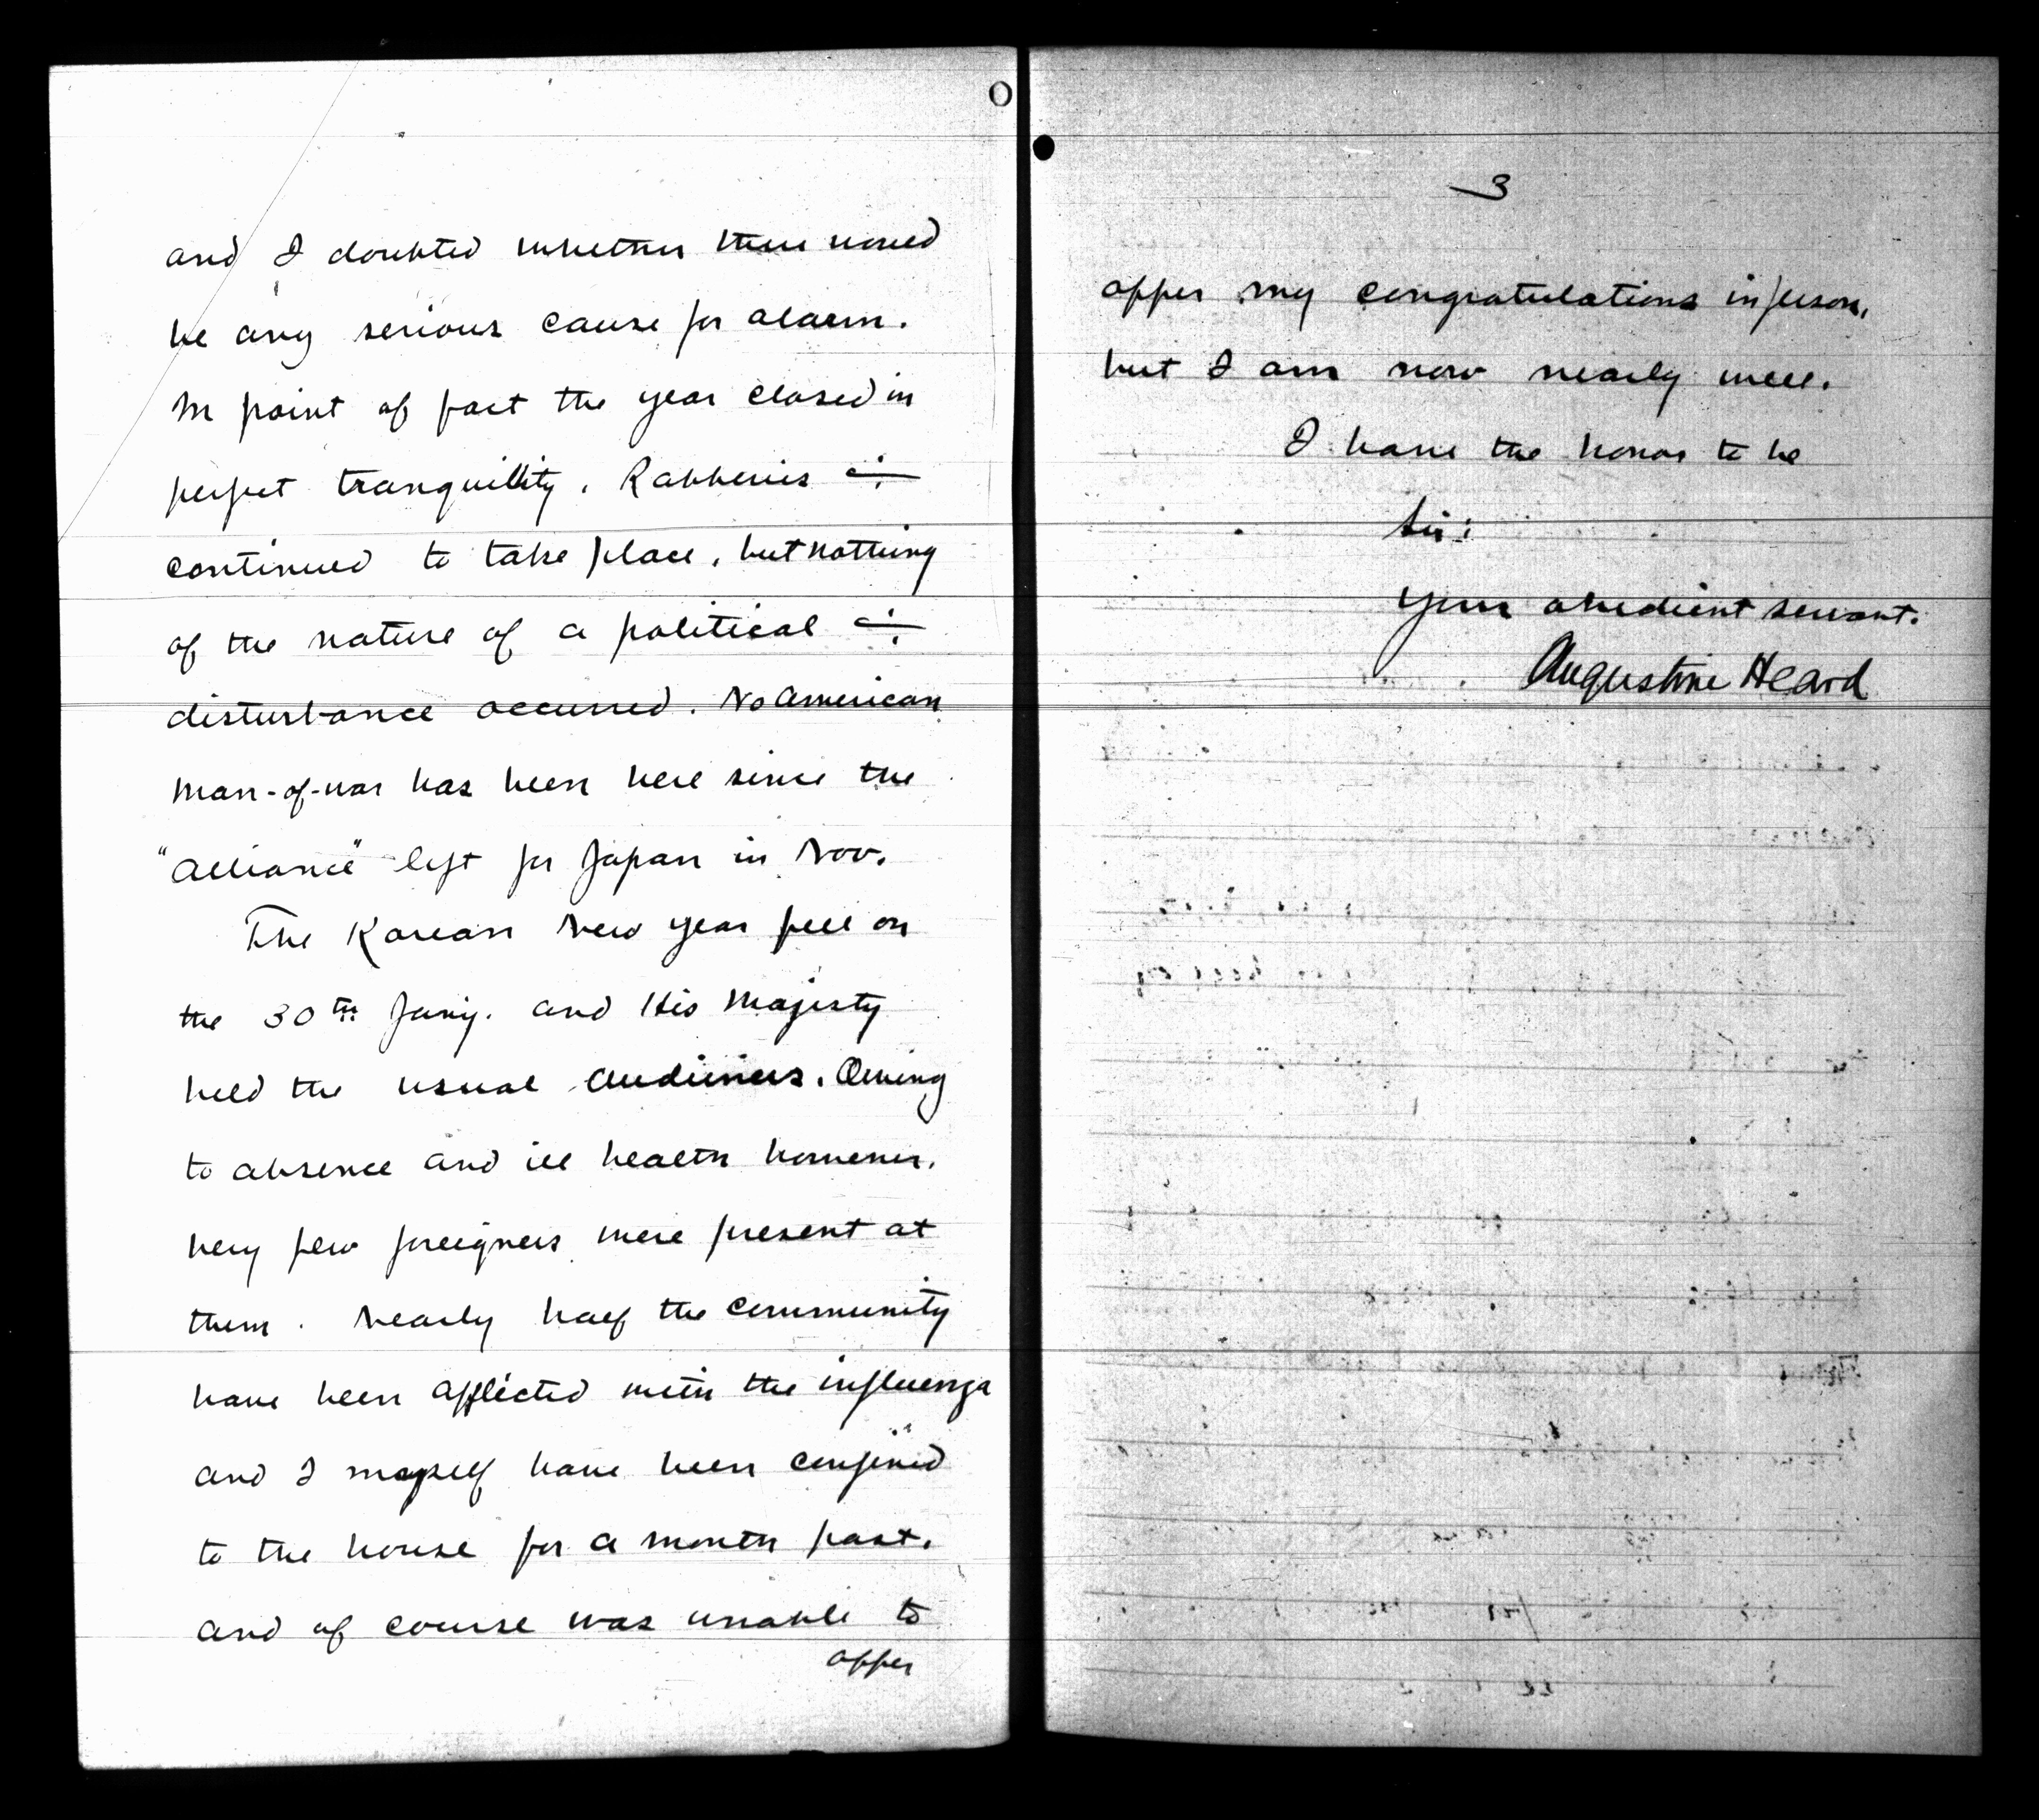 and I doubted whether there would
be any serious cause for alarm.
In point of fact the year closed in
perfect tranquillity. Robberies
continued to take place, but nothing
of the nature of a political
disturbance occurred. No American
man-of-war has been here since the
"Alliance" left for Japan in Nov.
The Korean New Year fell on
the 30th Jany. and His Majesty
held the usual audiences. Owing
to absence and ill health however,
very few foreigners were present at
them. Nearly half the community
have been afflicted with the influenza
and I myself have been confined
to the house for a month past,
and of course was unable to
offer
3
offer my congratulations in person,
but I am now nearly well.
I have the honor to be
Sir:
Your obedient servant.
Augustine Heard